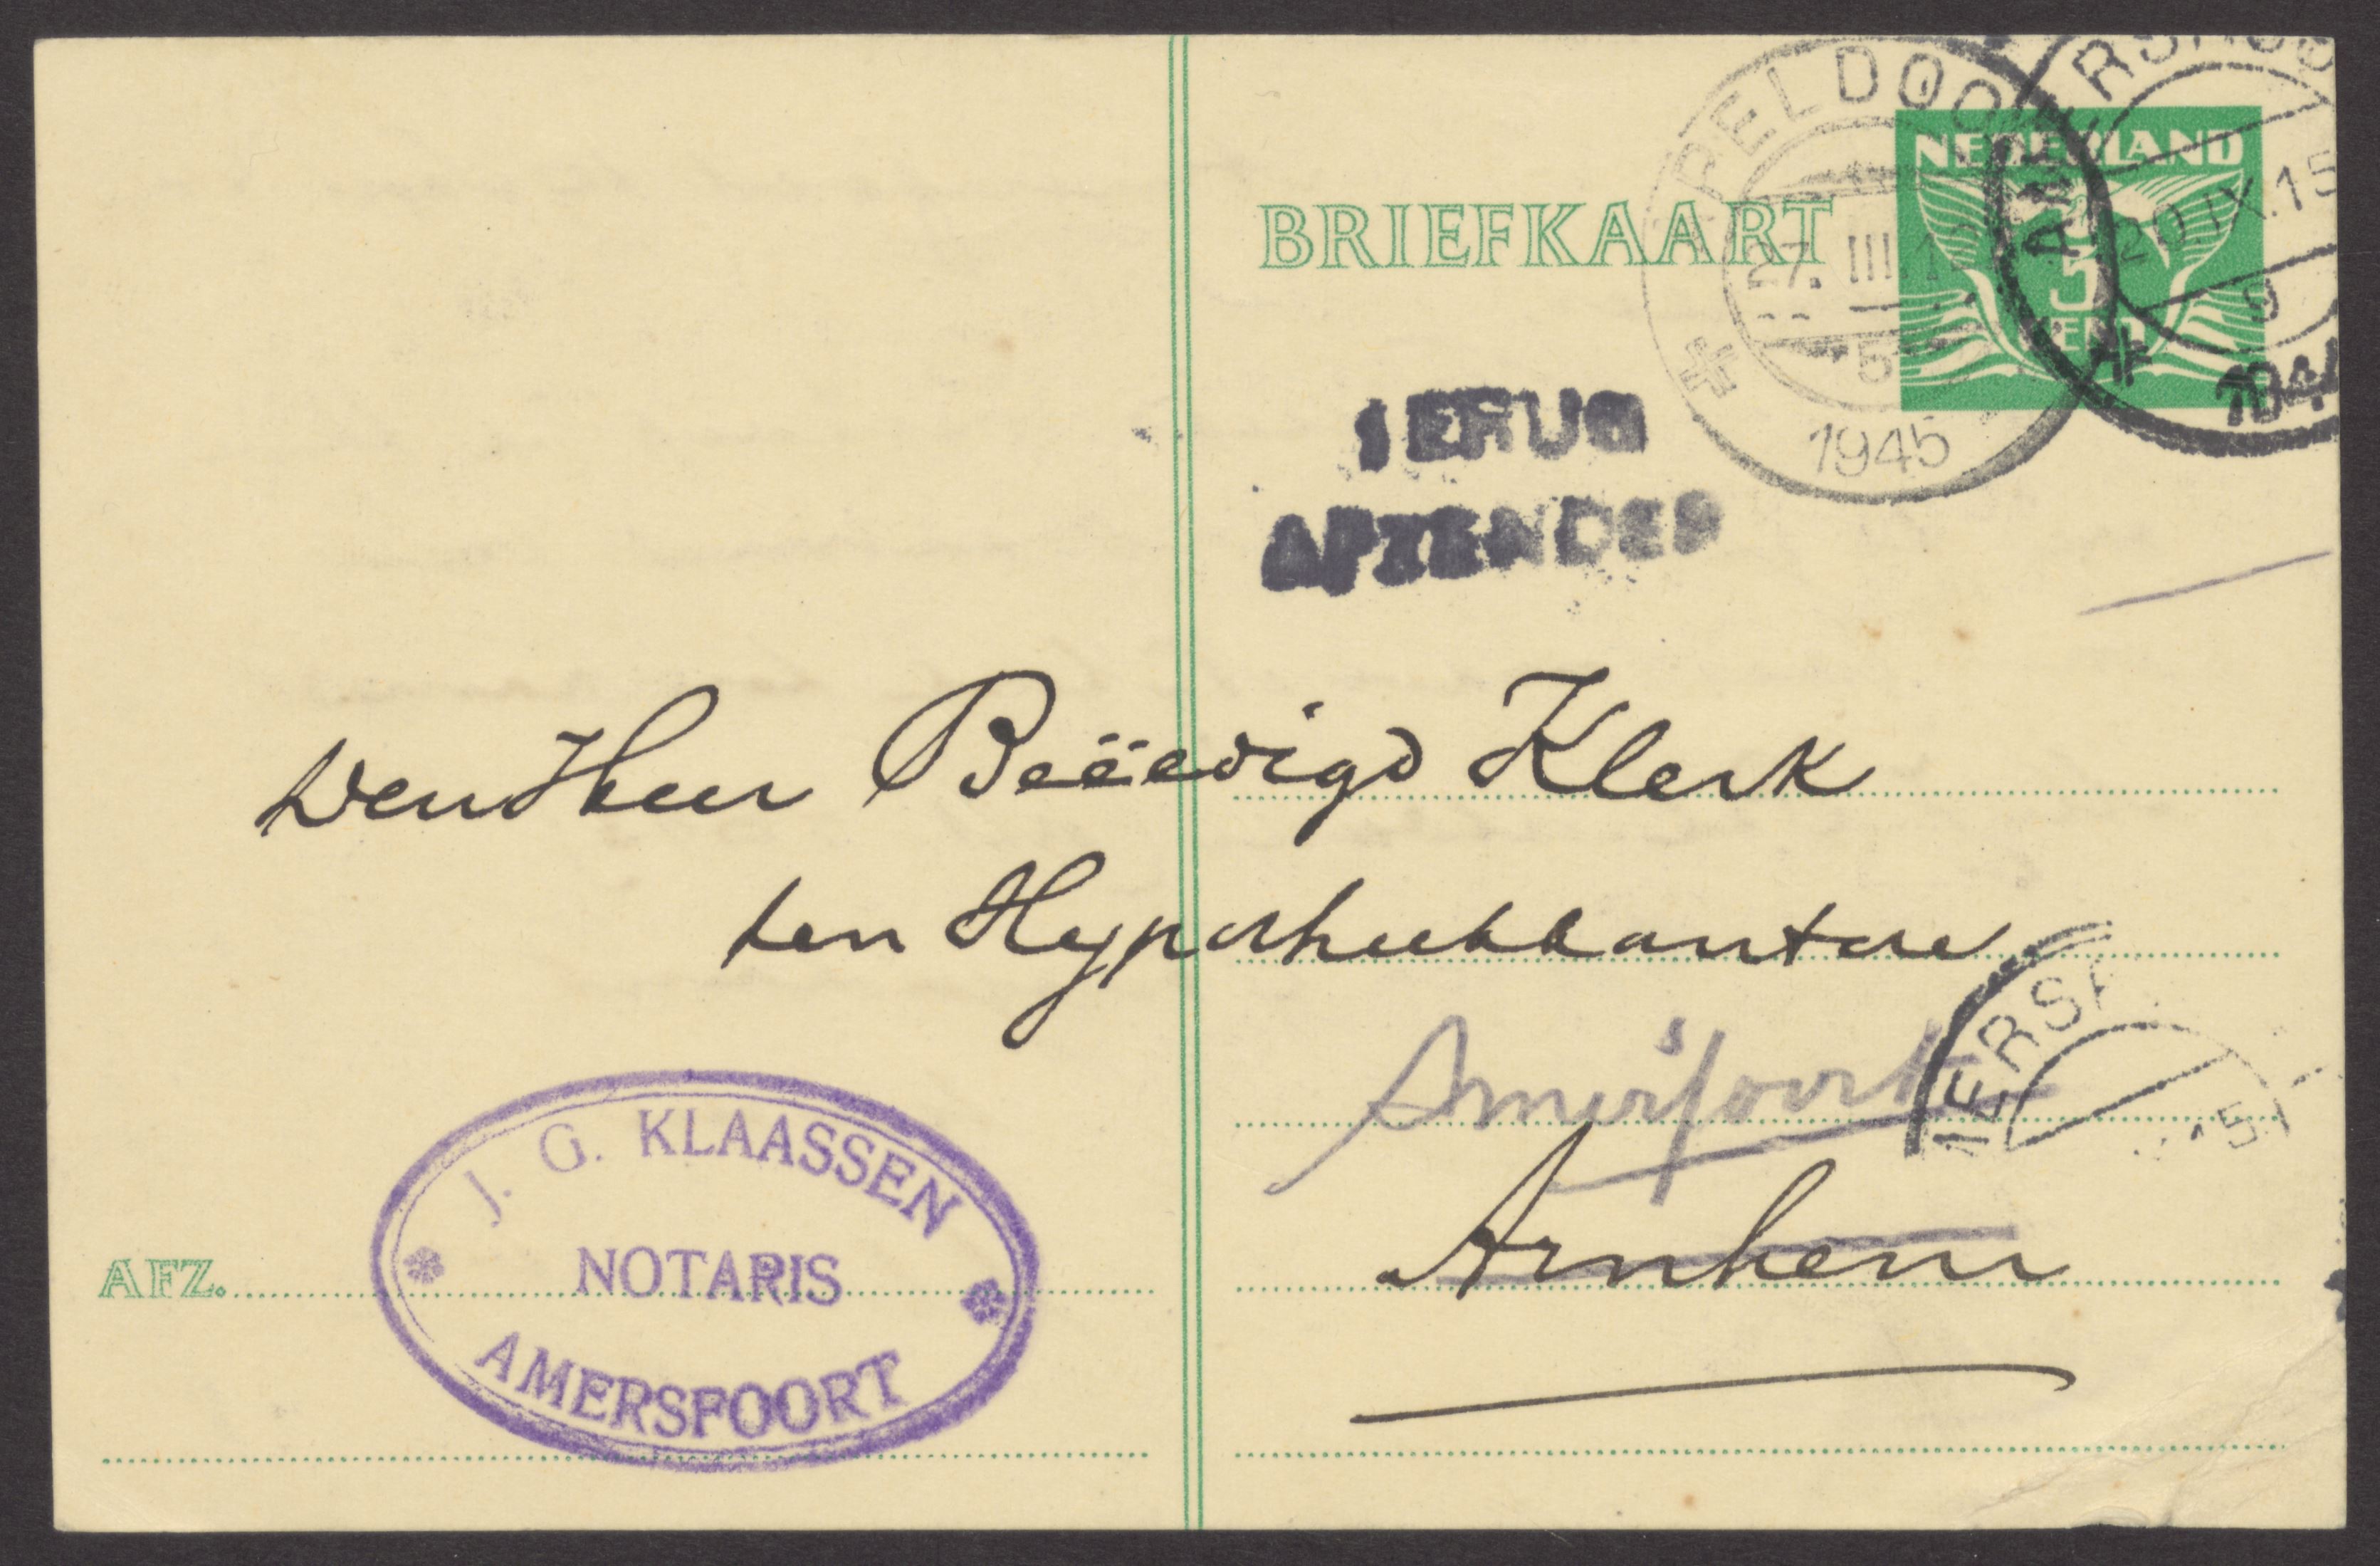 BRIEFKAART
NEDERLAND
5
CENT
PELDOO
27.III.12
5
1945
AMERSFOO
20.IX.15
9
194
TERUG
AFZENDER
Den Heer Beëedigd Klerk
ten Hypotheekkantore
Amersfoort
MERSF
15
Arnhem
AFZ.
J. G. KLAASSEN
NOTARIS
AMERSFOORT